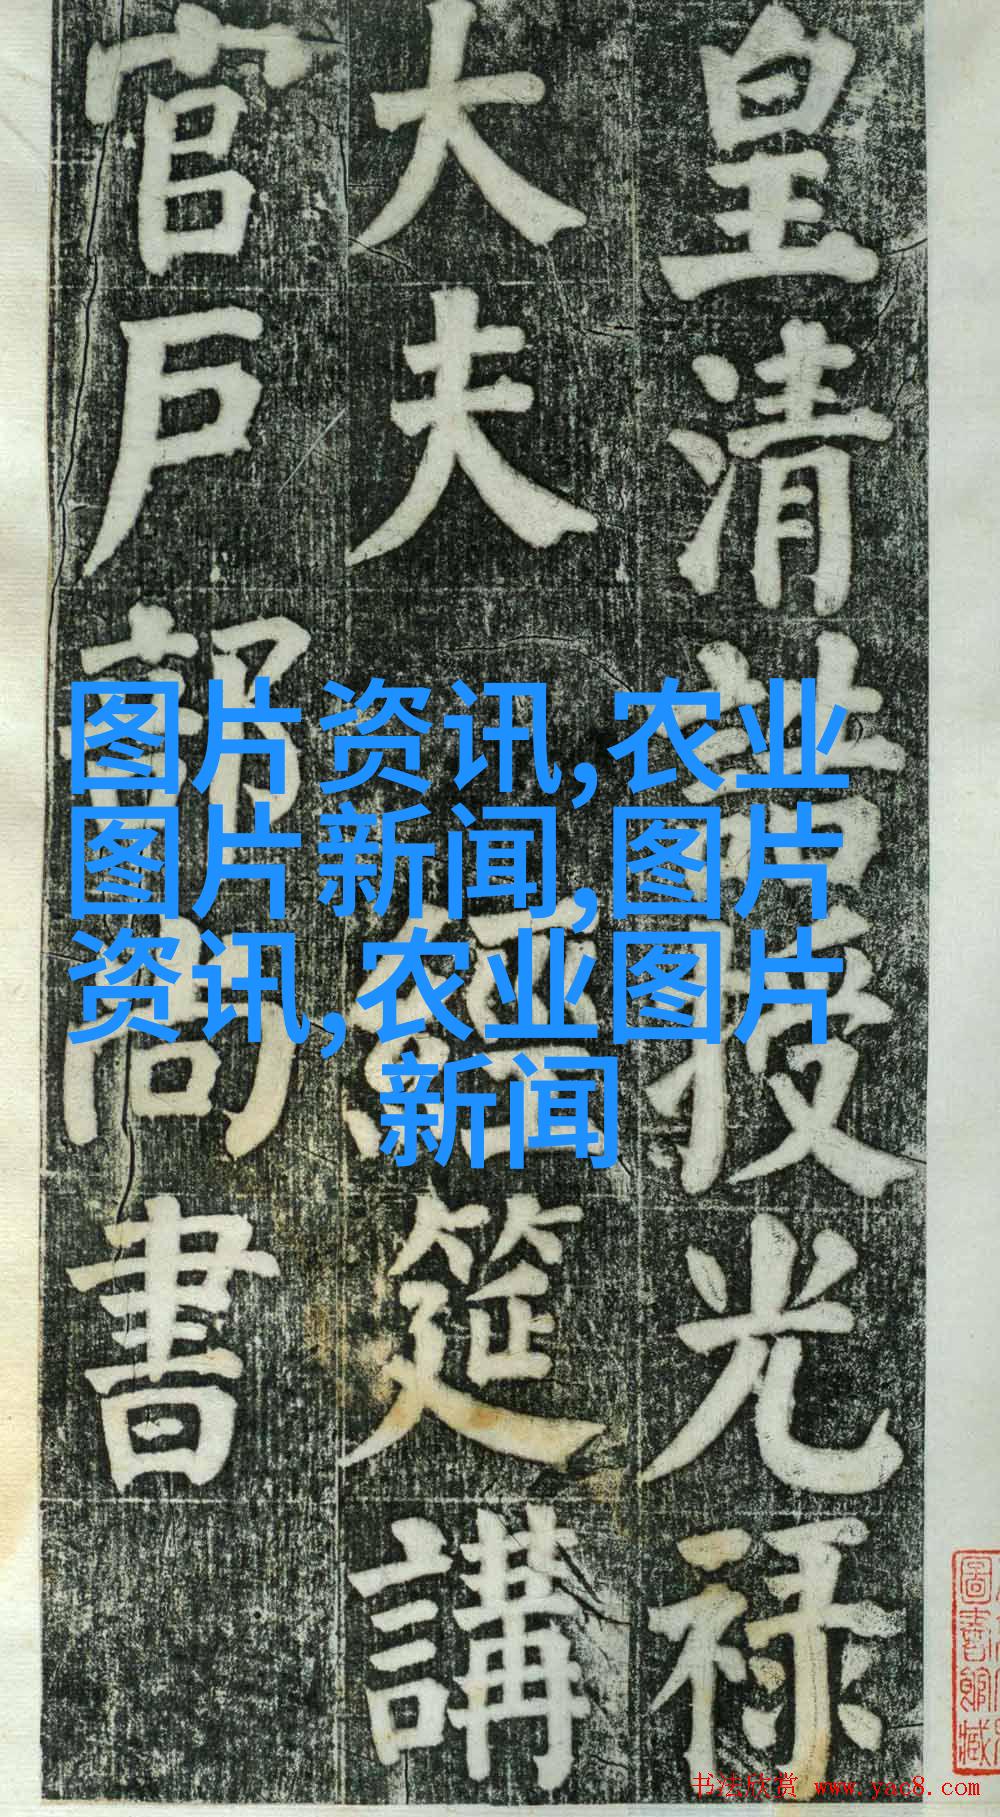 皇清誥授光禄
大夫經筵講
官戶部尚書
图片资讯,农业
图片新闻,图片
资讯,农业图片
新闻
圖書館藏
书法欣赏 www.yac8.com